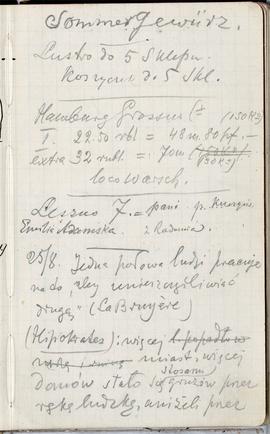 Sommer Gewürz.
Lustro do 5 Sklepu.
Koszyczek do 5 Skl.
Hamburg Grossum (± (150 Kg)
I. 22.50 rbl = 48 m. 80 pf. –
extra 32 rubl. = 70 m
loco Warsch.
Leszno 7. = pani p.
Emilii Adamska z Radomia.
25/8. „Jedna połowa ludzi pracuje
na to, aby unieszczęśliwić
drugą” (La Bruyère)
(Hipokrates): więcej
miast, więcej
domów stało się (stosami) gruzów przez
rękę ludzką, aniżeli przez